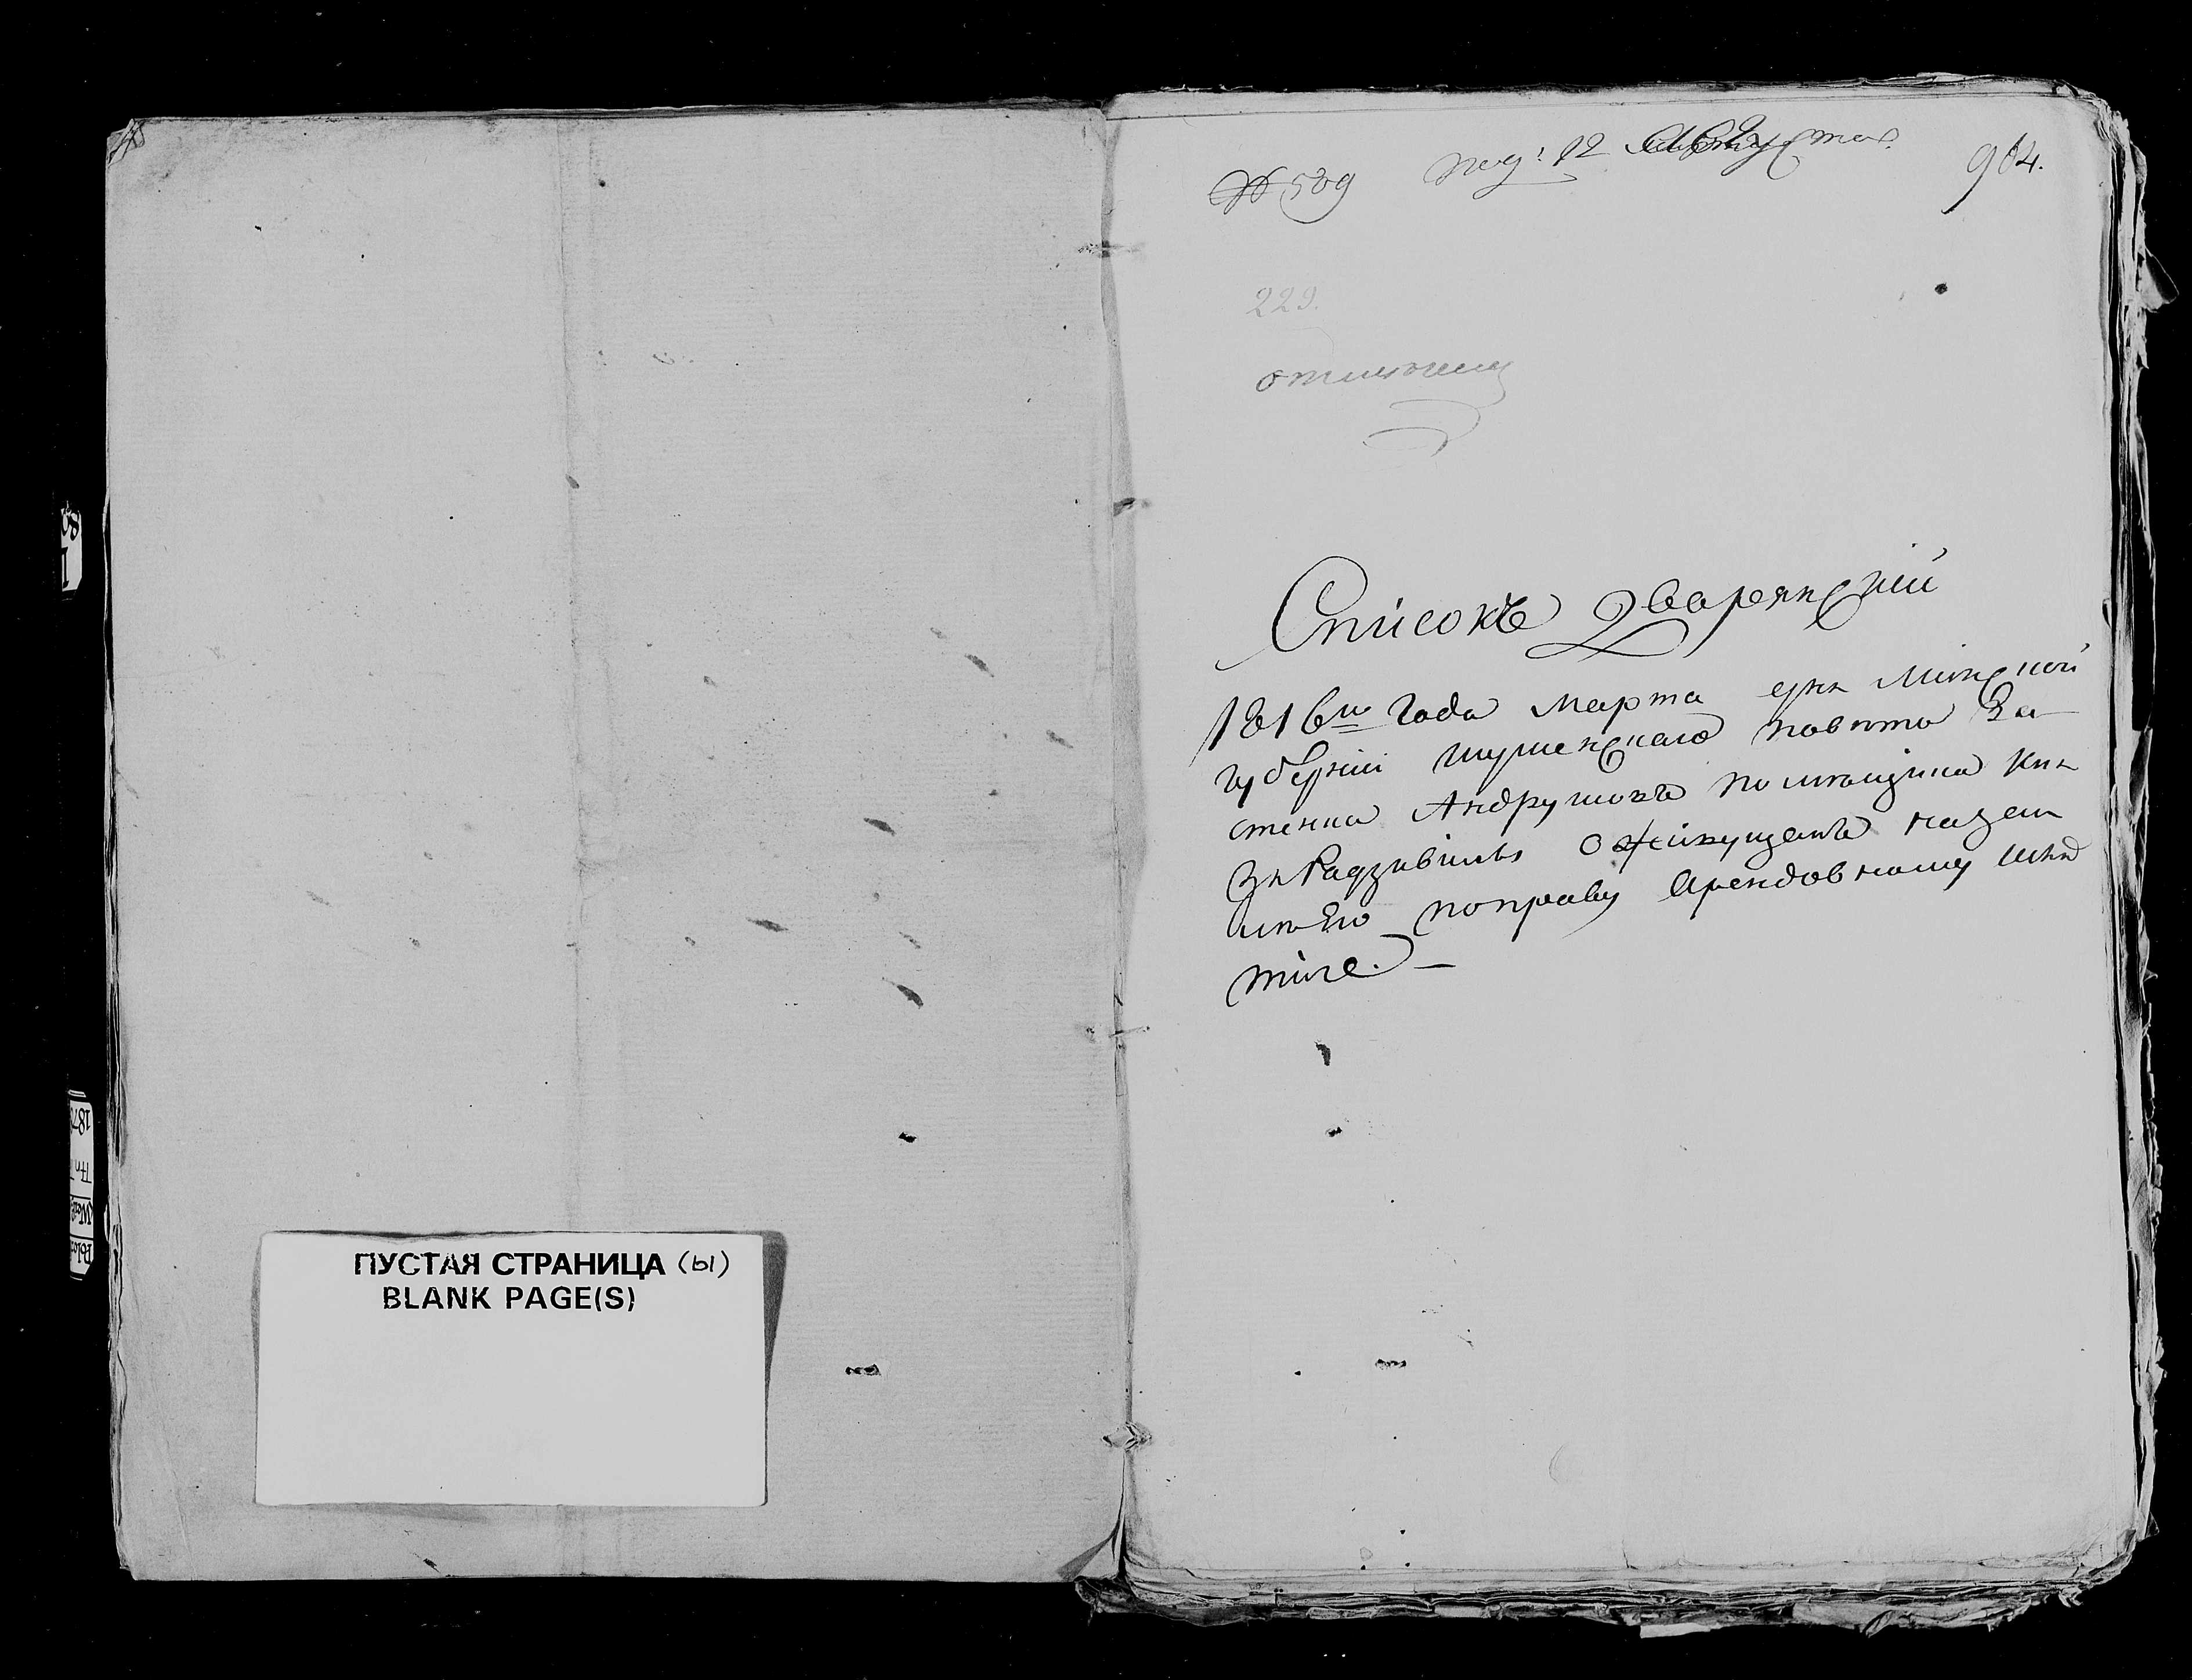 ПУСТАЯ СТРАНИЦА (ы)
BLANK PAGE(S)
№ 589 под: 12 Августа. 904.
229.
Списокъ Дворянский
1816го Года Марта дня Минской
губернии Игуменскаго повета За
стенка Андрушовъ помещика Кня
зя Радзивила о живущемъ
поправу Арендовному